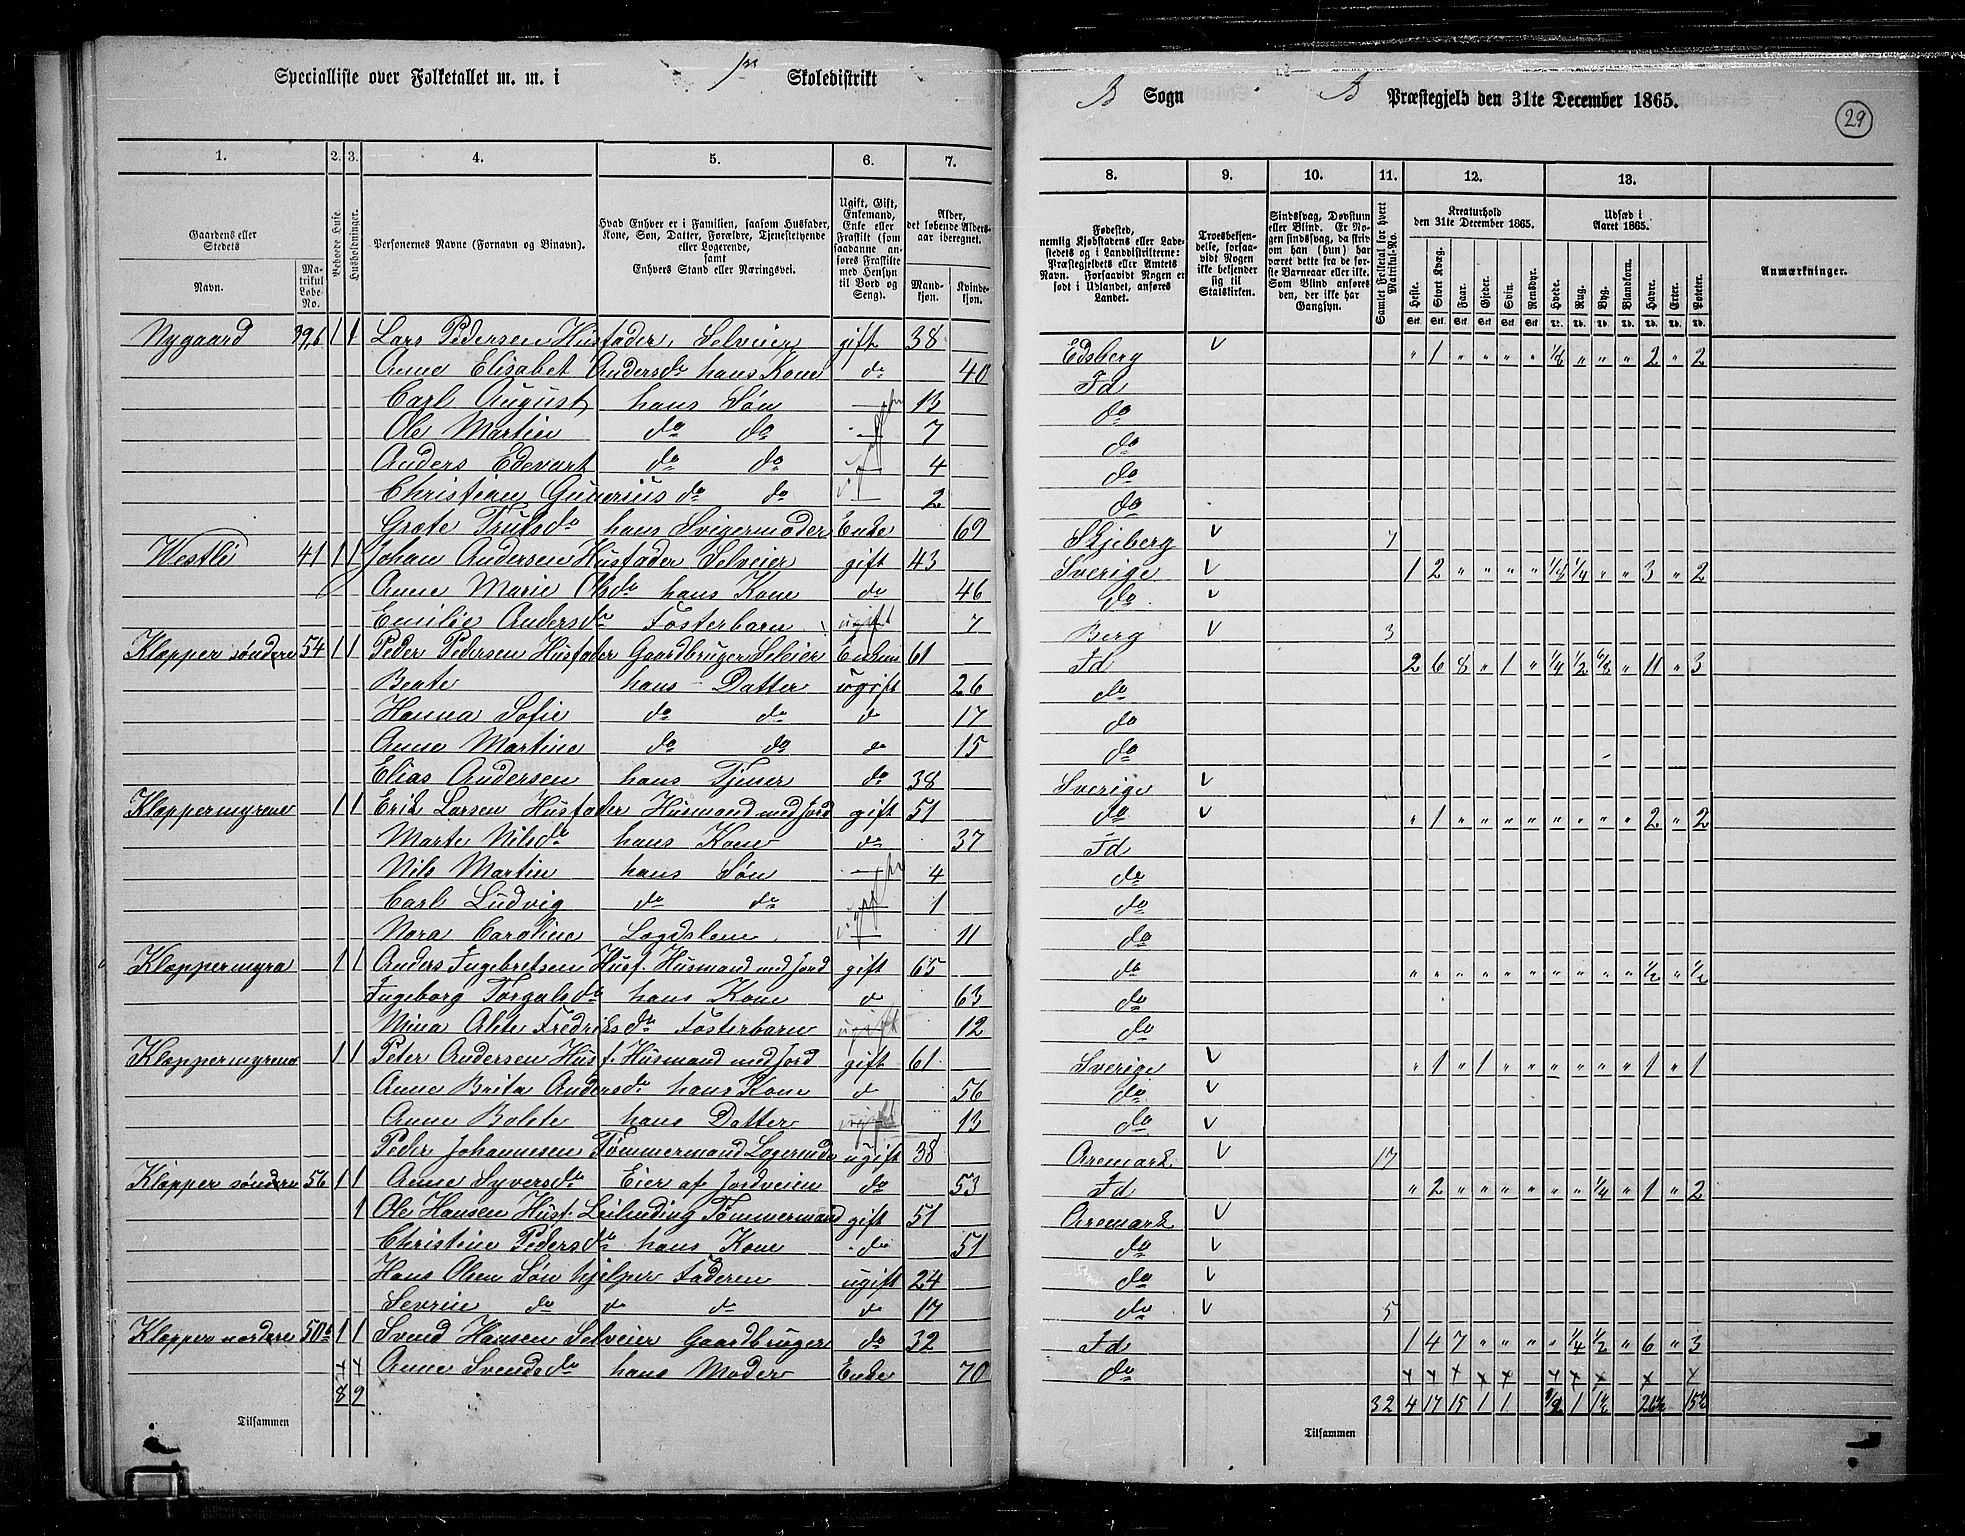 Specialliste over Folketallet m. m. i Skoledistrikt
B Sogn B Præstegjeld den 31te December 1865.
29
1. 2. 3. 4. 5. 6. 7. 8. 9. 10. 11. 12. 13.
Gaardens eller Stedets Navn. Matrikul Løbe-No. Beboede Huse. Husholdninger. Personernes Navne (Fornavn og Binavn). Hvad Enhver er i Familien, saasom Husfader, Kone, Søn, Datter, Forældre, Tjenestetyende eller Logerende, samt Enhvers Stand eller Næringsvei. Ugift, Gift, Enkemand, Enke eller Fraskilt (som saadanne anføres Fraskilte med Hensyn til Bord og Seng). Alder, det løbende Aldersaar iberegnet. Mandkjøn. Kvindekjøn.
Fødested, nemlig Kjøbstadens eller Ladestedets og i Landdistrikterne: Præstegjeldets eller Amtets Navn. Forsaavidt Nogen er født i Udlandet, anføres Landet. Troesbekjendelse, forsaavidt Nogen ikke bekjender sig til Statskirken. Sindssvag, Døvstum eller Blind. Er Nogen sindssvag, da skrives om han (hun) har været dette fra de første Barneaar eller ikke. Som Blind anføres den, der ikke har Gangsyn. Samlet Folketal for hvert Matrikul-No. Kreaturhold den 31te December 1865. Udsæd i Aaret 1865. Anmærkninger.
Heste. Stort Kvæg. Faar. Gjeder. Svin. Rensdyr. Hvede. Rug. Byg. Blandkorn. Havre. Erter. Poteter.
Nygaard 39,6 1 1 Lars Pedersen Husfader, Selveier gift 38 Edsberg v " 1 " " " " 1/8 " " " 2 " 2
Anne Elisabet Andersdr hans Kone do 40 Id
Carl August hans Søn 13 do
Ole Martin do do 7 do
Anders Edevart do do 4 do
Christian Gunerius do do 2 do
Grete Trulsdr hans Svigermoder Enke 69 Skjeberg v 7
Westli 41 1 1 Johan Andersen Husfader Selveier gift 43 Sverige v 1 2 " " " " 1/8 1/4 " " 3 " 2
Anne Marie Olsdr hans Kone do 46 do v
Emilie Andersdr Fosterbarn ugift 7 Berg v 3
Klepper søndre 54 1 1 Peder Pedersen Husfader Gaardbruger Seleier Enkem 61 Id 2 6 8 " 1 " 1/4 1/2 6/8 " 11 " 3
Beate hans Datter ugift 26 do
Hanna Sofie do do do 17 do
Anne Martine do do do 15 do
Elias Andersen hans Tjener do 38 Sverige v
Kleppermyrene 1 1 Erik Larsen Husfader Husmand med Jord gift 51 do v " 1 " " " " " " " " 2 " 2
Marte Nilsdr hans Kone do 37 Id
Nils Martin hans Søn 4 do
Carl Ludvig do do ugift 1 do
Nora Caroline Lægdslem 11 do
Kleppermyra 1 1 Anders Ingebretsen Husf. Husmand med Jord gift 65 do " " " " " " " " " " 1/2 " 1/2
Ingeborg Torgalsdr hans Kone do 63 do
Mina Alete Fredriksdr Fosterbarn ugift 12 do
Kleppermyrene 1 1 Peter Andersen Husf. Husmand med Jord gift 61 Sverige v " 1 " 1 " " " " " " 1 " 1
Anne Brita Andersdr hans Kone do 56 do v
Anne Bolete hans Datter ugift 13 do v
Peder Johannesen Tømmermand Logerende ugift 38 Aremark v 17
Klepper søndre 56 1 1 Anne Syversdr Eier af Jordveien do 53 Id " 2 " " " " " " 1/4 " 1 " 2
1 Ole Hansen Husf. Leilending Tømmermand gift 51 Aremark v
Christine Pedersdr hans Kone do 51 do v
Hans Olsen Søn hjelper Faderen ugift 24 do v
Sevrin do do do do 17 do v 5
Klepper nordre 50 1 1 Svend Hansen Selveier Gaardbruger do 32 Id 1 4 7 " " " " 1/4 1/2 " 6 " 3
Anne Svendsdr hans Moder Enke 70 do
Tilsammen 8 9
Tilsammen 32 4 17 15 1 1 1/2 1 1 1/2 26 1/2 15 1/2